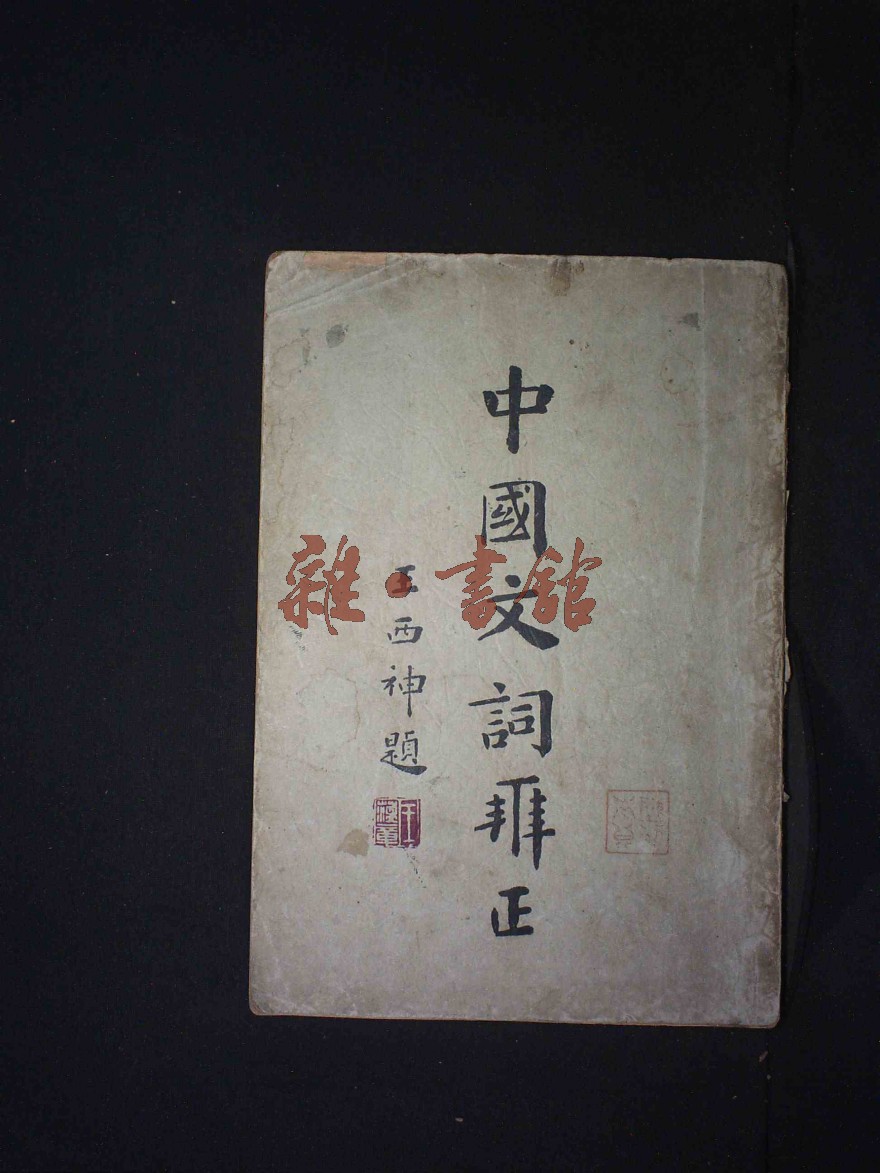 中國文詞辨正
王西神題
雜·書館